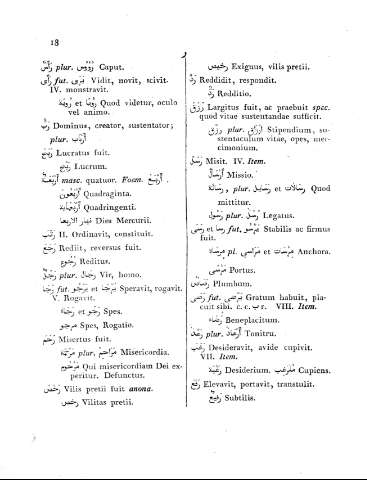 18
رَأْسٌ plur. رُؤُوسٌ Caput.
رَأَى fut. يَرَى Vidit, novit, scivit.
IV. monstravit.
رُؤْيَةٌ et رُؤْيَا Quod videtur, oculo
vel animo.
رَبٌّ Dominus, creator, sustentator;
plur. أَرْبَابٌ
رَبِحَ Lucratus fuit.
رِبْحٌ Lucrum.
أَرْبَعَةٌ masc. quatuor. Foem. أَرْبَعٌ.
أَرْبَعُونَ Quadraginta.
أَرْبَعُمِايَةٍ Quadringenti.
نهار الاربعا Dies Mercurii.
رتّب II. Ordinavit, constituit.
رَجَعَ Rediit, reversus fuit.
رُجُوعٌ Reditus.
رَجُلٌ plur. رِجَالٌ Vir, homo.
رَجَا fut. يَرْجُو et يَرْجَى Speravit, rogavit.
V. Rogavit.
رَجَاءٌ et رَجُو Spes.
مرجو Spes, Rogatio.
رَحِمَ Misertus fuit.
مَرْحَمَةٌ plur. مَرَاحِمُ Misericordia.
مَرْحُومٌ Qui misericordiam Dei ex-
peritur. Defunctus.
رَخُصَ Vilis pretii fuit anona.
رُخْصٌ Vilitas pretii.
رَخِيصٌ Exiguus, vilis pretii.
رَدَّ Reddidit, respondit.
رَدٌّ Redditio.
رَزَقَ Largitus fuit, ac praebuit spec.
quod vitae sustentandae sufficit.
رِزْقٌ plur. أَرْزَاقٌ Stipendium, su-
stentaculum vitae, opes, mer-
cimonium.
رَسَلَ Misit. IV. Item.
أَرْسَالٌ Missio.
رِسَالَةٌ, plur. رَسَايِلُ et رِسَالَات Quod
mittitur.
رَسُولٌ plur. رُسُلٌ Legatus.
رَسَى et رَسَا fut. يَرْسُو Stabilis ac firmus
fuit.
مَرْسَاةٌ pl. مَرَاسِي et مَرْسَيَات Anchora.
مَرْسَى Portus.
رَصَاصٌ Plumbum.
رَضِيَ fut. يَرْضَى Gratum habuit, pla-
cuit sibi. c. c. ب r. VIII. Item.
رَضَاءٌ Beneplacitum.
رَعْدٌ plur. أَرْعَادٌ Tonitru.
رَغِبَ Desideravit, avide cupivit.
VII. Item.
رَغْبَةٌ Desiderium. مُرْغِبٌ Cupiens.
رَفَعَ Elevavit, portavit, transtulit.
رَفِيعٌ Subtilis.